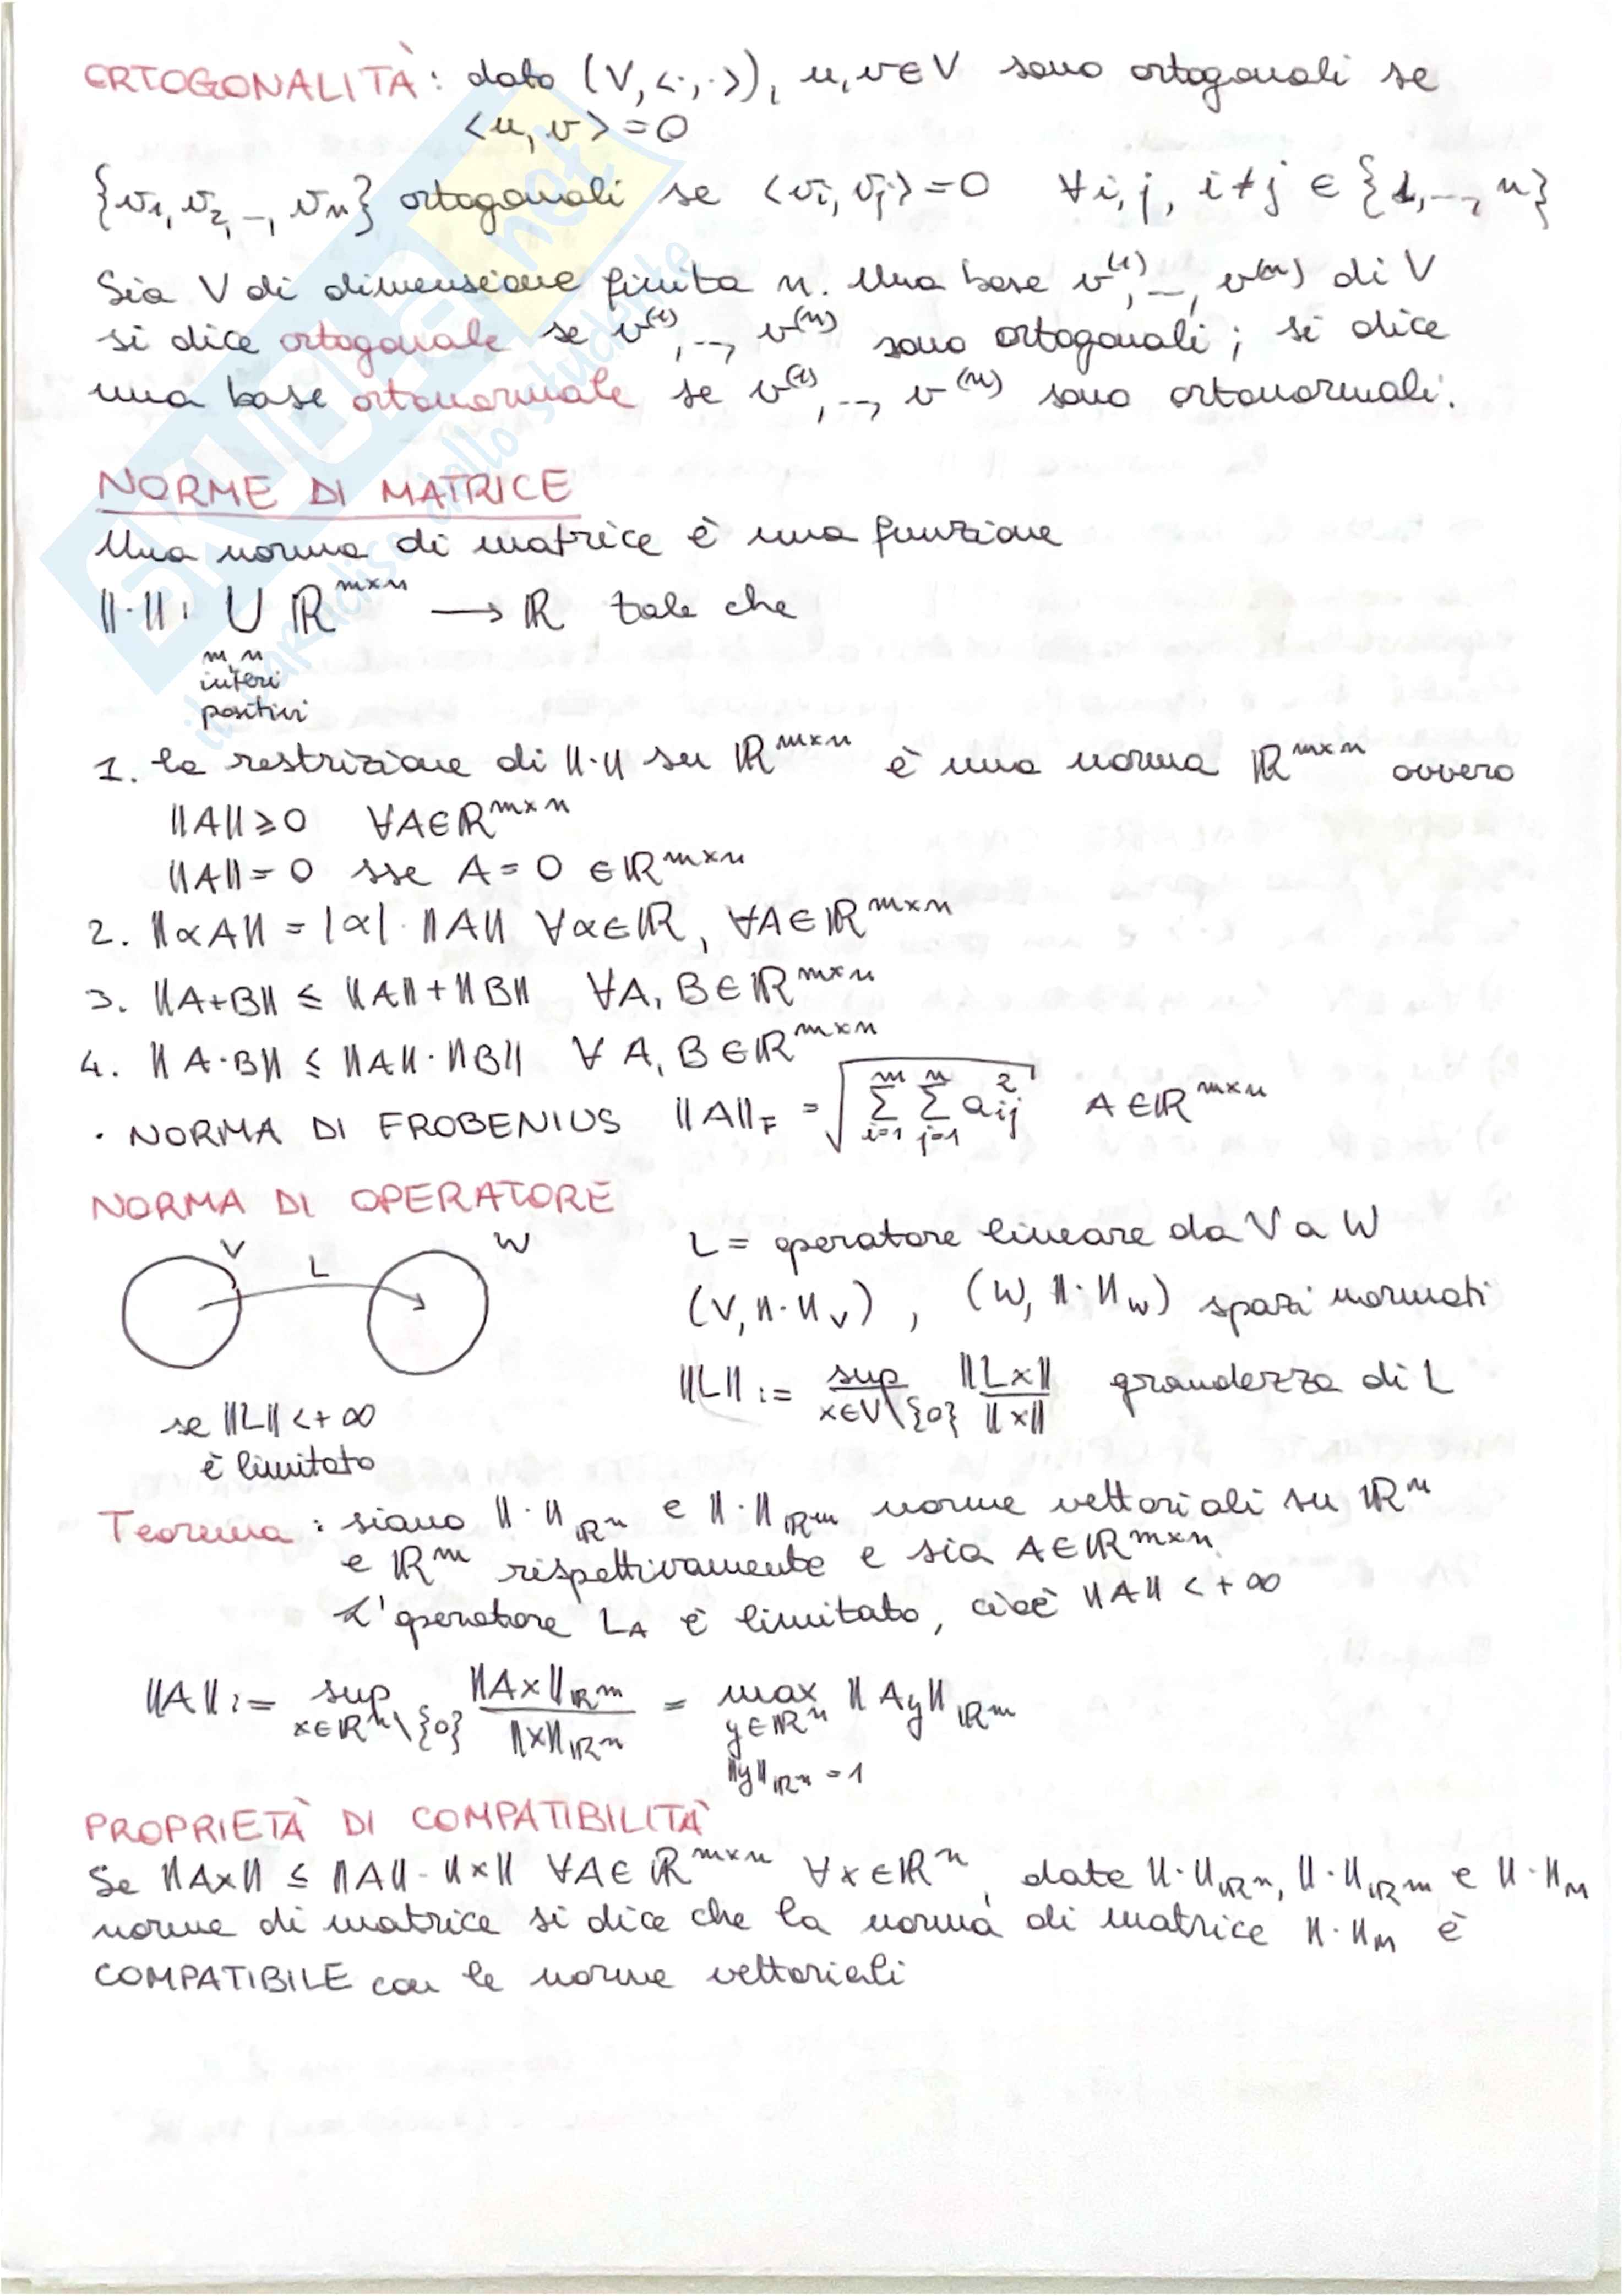 ERTOGONALITÀ: dato (V, <·,·>), u,v∈V sono ortogonali se
<u,v>=0
{v₁, v₂, _, vₙ} ortogonali se <vᵢ, vⱼ>=0 ∀i,j, i≠j ∈ {1,--, n}
Sia V di dimensione finita n. Una base v⁽¹⁾, _, v⁽ⁿ⁾ di V
si dice ortogonale se v⁽¹⁾, --, v⁽ⁿ⁾ sono ortogonali; si dice
una base ortonormale se v⁽¹⁾, --, v⁽ⁿ⁾ sono ortonormali.
NORME DI MATRICE
Una norma di matrice è una funzione
||·||: ∪ ℝᵐˣⁿ → ℝ tale che
m, n
interi
positivi
1. la restrizione di ||·|| su ℝᵐˣⁿ è una norma ℝᵐˣⁿ ovvero
||A||≥0 ∀A∈ℝᵐˣⁿ
||A||=0 sse A=0 ∈ℝᵐˣⁿ
2. ||αA|| = |α|·||A|| ∀α∈ℝ, ∀A∈ℝᵐˣⁿ
3. ||A+B|| ≤ ||A||+||B|| ∀A, B∈ℝᵐˣⁿ
4. ||A·B|| ≤ ||A||·||B|| ∀A, B∈ℝᵐˣⁿ
· NORMA DI FROBENIUS ||A||_F = √(Σ_{i=1}^{m} Σ_{j=1}^{n} a_{ij}²) A∈ℝᵐˣⁿ
NORMA DI OPERATORE
V L W
L = operatore lineare da V a W
(V, ||·||_V), (W, ||·||_W) spazi normati
||L|| := sup_{x∈V\{0}} ||Lx|| / ||x|| grandezza di L
se ||L|| <+∞
è limitato
Teorema: siano ||·||_{ℝⁿ} e ||·||_{ℝᵐ} norme vettoriali su ℝⁿ
e ℝᵐ rispettivamente e sia A∈ℝᵐˣⁿ.
L'operatore L_A è limitato, cioè ||A|| <+∞
||A|| := sup_{x∈ℝⁿ\{0}} ||Ax||_{ℝᵐ} / ||x||_{ℝⁿ} = max_{y∈ℝⁿ ||y||_{ℝⁿ}=1} ||Ay||_{ℝᵐ}
PROPRIETÀ DI COMPATIBILITÀ
Se ||Ax|| ≤ ||A||·||x|| ∀A∈ℝᵐˣⁿ ∀x∈ℝⁿ, date ||·||_{ℝⁿ}, ||·||_{ℝᵐ} e ||·||_M
norme di matrice si dice che la norma di matrice ||·||_M è
COMPATIBILE con le norme vettoriali
SKUOLA.net
il paradiso dello studente